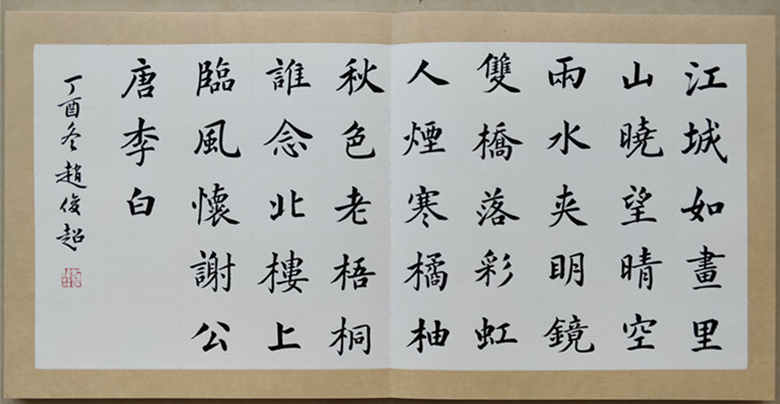 江城如畫里
山曉望晴空
雨水夾明鏡
雙橋落彩虹
人煙寒橘柚
秋色老梧桐
誰念北樓上
臨風懷謝公
唐李白
丁酉冬趙俊超